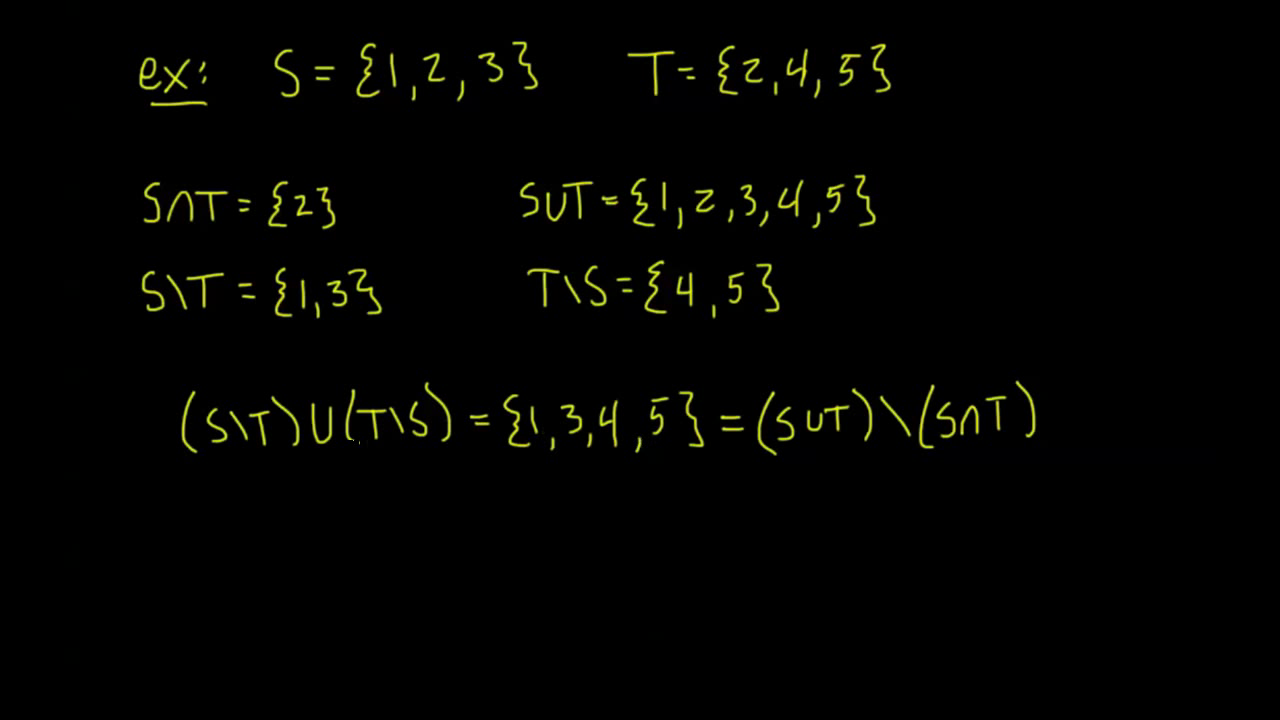 ex: S = {1, 2, 3} T = {2, 4, 5}
S∩T = {2} S∪T = {1, 2, 3, 4, 5}
S\T = {1, 3} T\S = {4, 5}
(S\T)∪(T\S) = {1, 3, 4, 5} = (S∪T)\(S∩T)